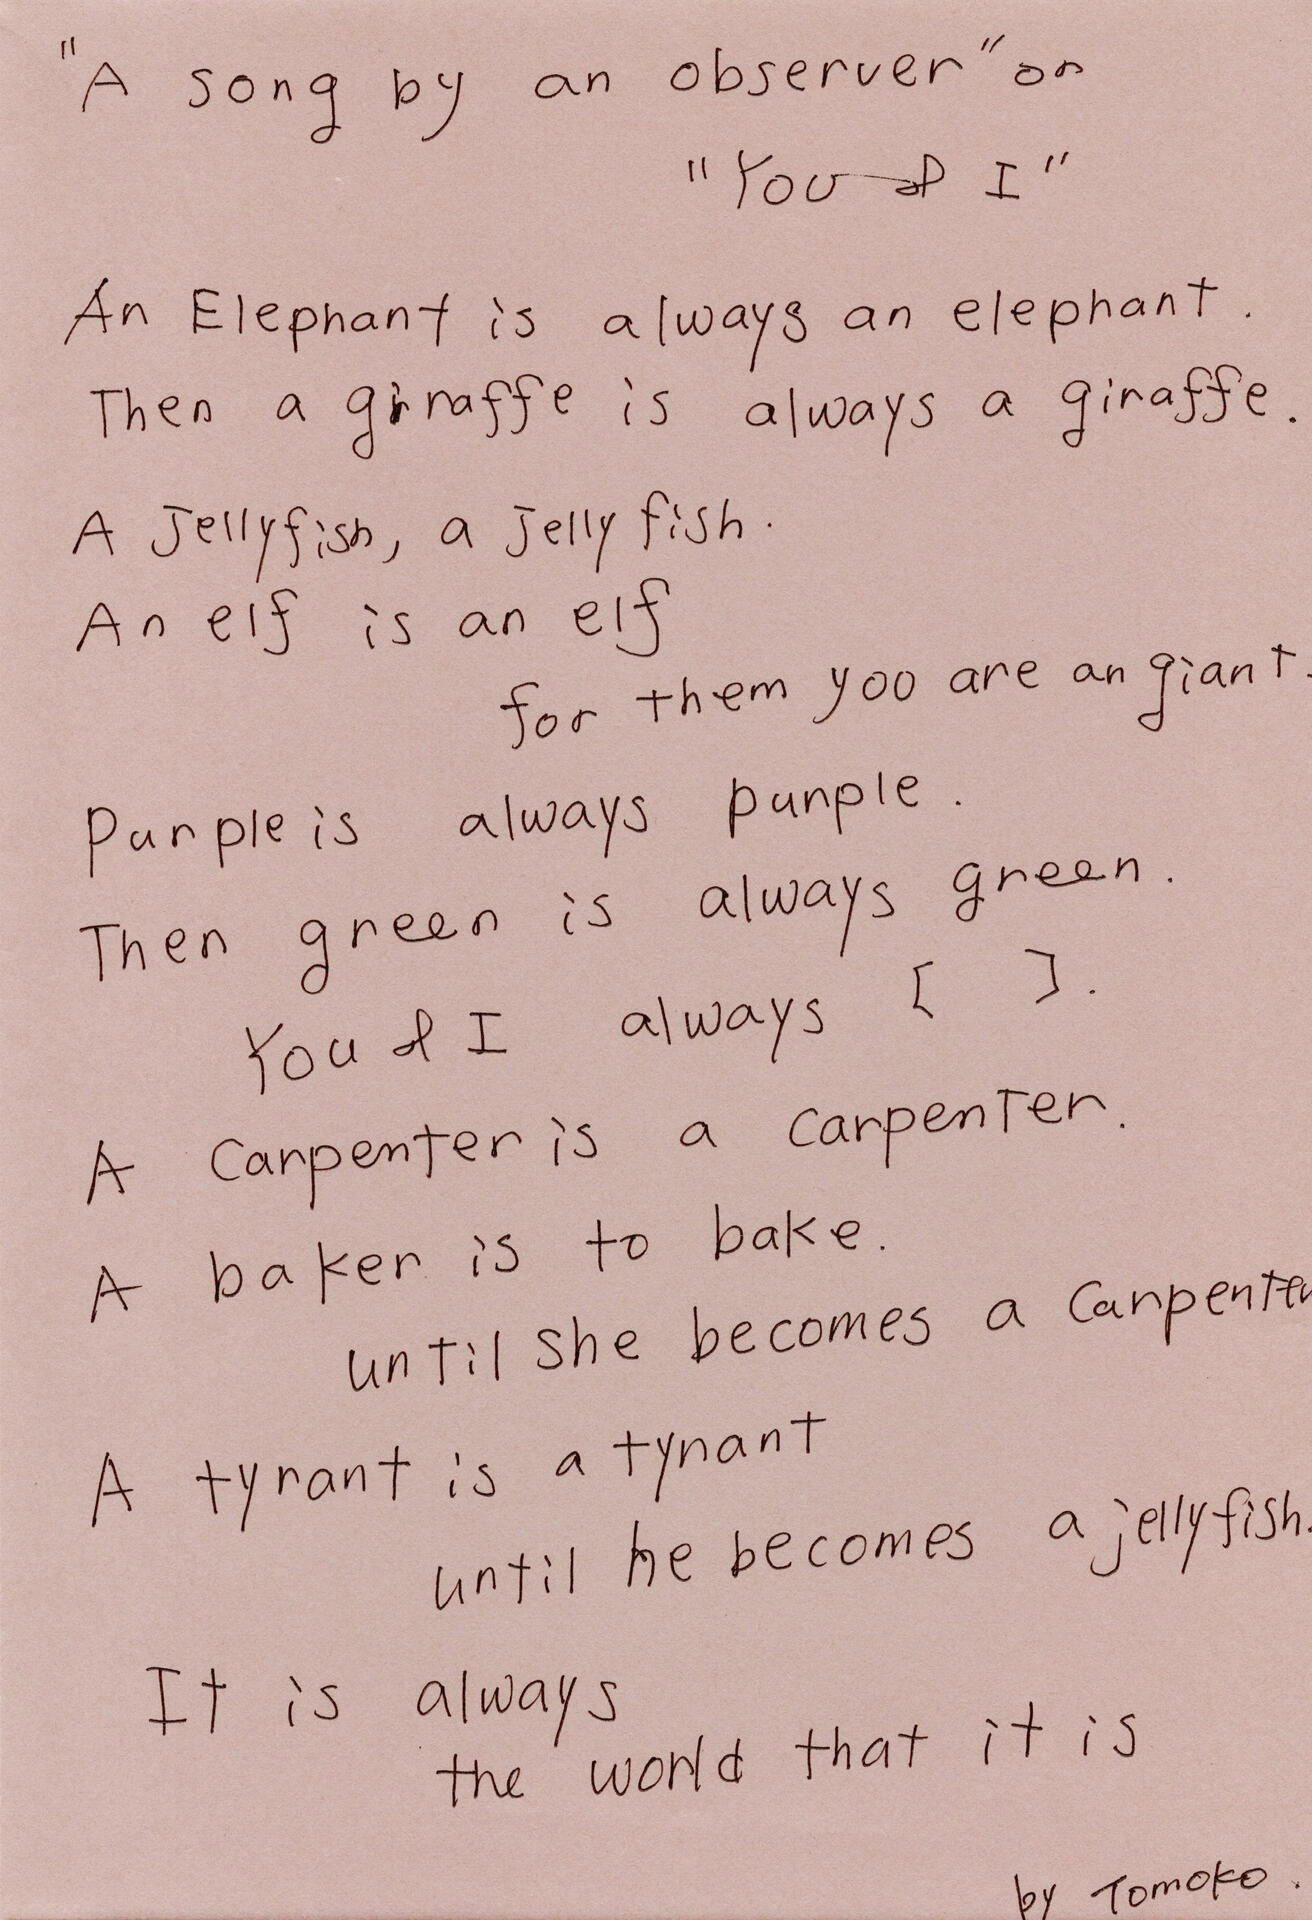 "A song by an observer" or
"You & I"
An Elephant is always an elephant.
Then a giraffe is always a giraffe.
A Jellyfish, a jelly fish.
An elf is an elf
for them you are an giant.
Purple is always purple.
Then green is always green.
You & I always [ ].
A Carpenter is a carpenter.
A baker is to bake.
until she becomes a carpenter
A tyrant is a tyrant
until he becomes a jellyfish.
It is always
the world that it is
by Tomoko.